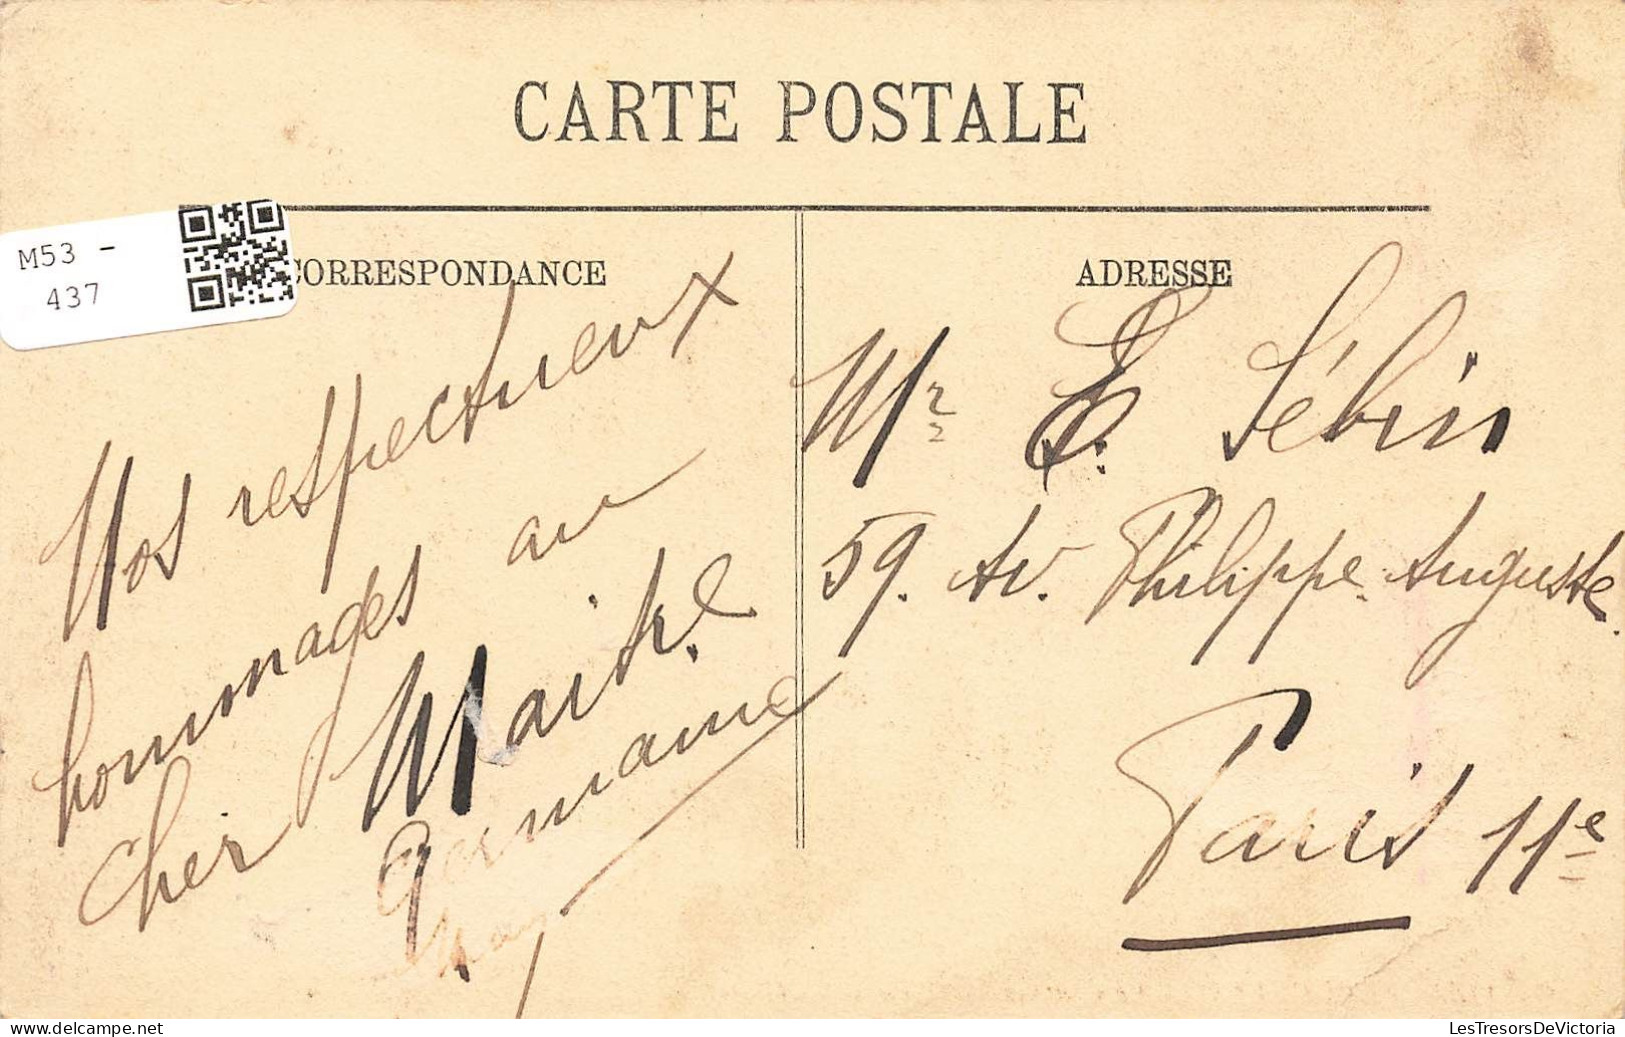 CARTE POSTALE
M53 -
437
CORRESPONDANCE
ADRESSE
Nos respectueux
hommages au
cher Maitre
Germaine
Mr E. Sébin
59. Av. Philippe-Auguste.
Paris 11e
www.delcampe.net
LesTresorsDeVictoria